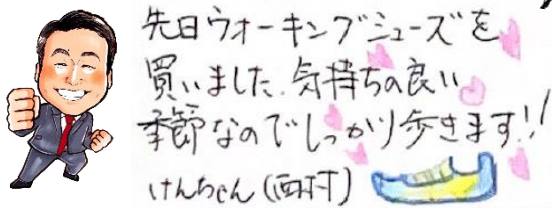 先日ウォーキングシューズを
買いました。気持ちの良い
季節なのでしっかり歩きます!!
けんちゃん(西村)